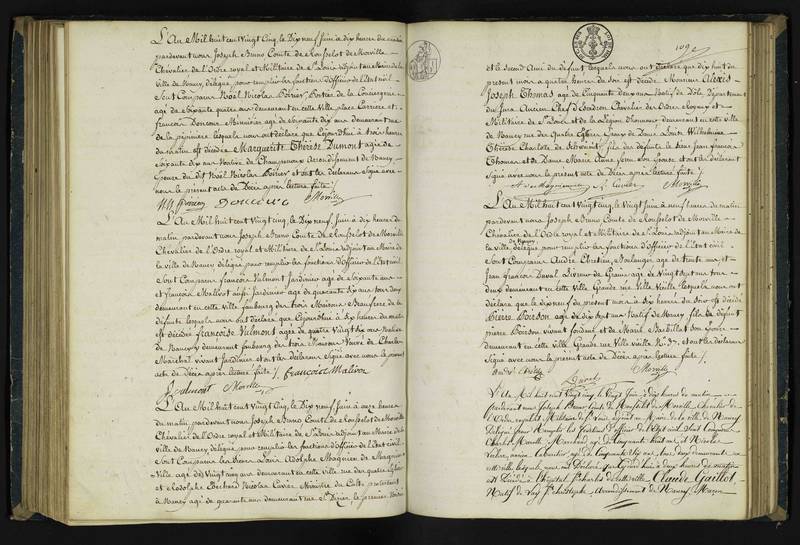 L'An Mil huit cent Vingt Cinq, le Dix neuf Juin à dix heures du matin
pardevant nous Joseph Bruno Comte de Rousselot de Morville
Chevalier de l'Ordre royal et Militaire de St Louis adjoint au Maire de la
Ville de Nancy, délégué pour remplir les fonctions d'Officier de l'Etat civil
Sont Comparus Noël Nicolas Poirier, Portier de la Conciergerie
agé de Soixante quatre ans demeurant en cette Ville place Carriere et
françois Doncourt Menuisier agé de Soixante dix ans demeurant rue
de la pépiniere lesquels nous ont déclaré que Cejourd'hui à trois heures
du matin est décédée Marguerite Thérèse Dumont agée de
Soixante dix ans Native de Champenoux Arrondissement de Nancy
Epouse du dit Noël Nicolas Poirier et ont les déclarans Signé avec
nous le présent acte de Décès après lecture faite /.
Morville
L'An Mil huit cent Vingt Cinq, le Dix neuf Juin, à dix heures du
matin pardevant nous Joseph Bruno Comte de Rousselot de Morville
Chevalier de l'Ordre royal et Militaire de St Louis adjoint au Maire de
la ville de Nancy délégué pour remplir les fonctions d'Officier de l'Etat civil
Sont Comparus françois Valmont Jardinier agé de Soixante ans
et François Malivot aussi Jardinier agé de quarante Six ans tous deux
demeurant en cette ville faubourg des trois Maisons
défunte lesquels nous ont déclaré que Cejourd'hui à dix heures du matin
est décédée françoise Valmont agée de quatre Vingt dix ans Native
de Nancy y demeurant faubourg des trois Maisons Veuve de Charles
Maréchal vivant Jardinier et ont les déclarans Signé avec nous le présent
acte de Décès après lecture faite /. françois Malivot
Valmont Morville
L'An Mil huit cent Vingt Cinq, le Dix neuf Juin à onze heures
du matin, pardevant nous Joseph Bruno Comte de Rousselot de Morville
Chevalier de l'Ordre royal et Militaire de St Louis adjoint au Maire de la
Ville de Nancy délégué, pour remplir les fonctions d'officier de l'Etat civil
Sont Comparus les Sieurs Louis Adolphe Magnien de Magnien
Ville agé de Vingt cinq ans demeurant en cette ville rue des quatre Eglises
et Rodolphe Nicolas Cuvier, Ministre du Culte protestant
à Nancy agé de quarante ans demeurant rue St Dizier, le premier
109
et le Second Ami du défunt lesquels nous ont déclaré que dix huit du
présent mois à quatre heures du Soir est décédé Monsieur Alexis
Joseph Thomas agé de Cinquante deux ans Natif de Dôle, Département
du Jura Ancien Chef d'Escadron Chevalier des Ordres royaux et
Militaire de St Louis et de la Légion d'honneur demeurant en cette ville
de Nancy rue des Quatre Eglises Epoux de Dame Louise Wilhelmine
Thérèse Charlotte de fils des defunts le Sieur Jean françois
Thomas et Dame Marie Anne Son Epouse et ont les déclarans
Signé avec nous le présent acte de Décès après lecture faite /.
Cuvier Morville
L'An Mil huit cent Vingt cinq, le Vingt Juin à neuf heures du matin
pardevant nous Joseph Bruno Comte de Rousselot de Morville
Chevalier de l'Ordre royal et Militaire de St Louis adjoint au Maire de
la Ville de Nancy, délégué pour remplir les fonctions d'officier de l'Etat civil
Sont Comparus André Chretien, Boulanger agé de trente ans et
Jean françois Duval Livreur de Grains agé de Vingt sept ans tous
deux demeurant en cette ville Grande rue Ville Vieille lesquels nous ont
déclaré que le dix neuf du présent mois à dix heures du Soir est décédé
Pierre Poirson agé de dix Sept ans Natif de Nancy fils de défunt
pierre Poirson vivant et de Marie Barbillat Son Epouse
demeurant en cette ville Grande rue Ville vieille No 37, et ont les déclarans
Signé avec nous le présent acte de Décès après lecture faite /.
Duval Morville
L'An Mil huit cent vingt cinq, le Vingt Juin, à dix heures du matin
pardevant nous Joseph Bruno Comte de Rousselot de Morville Chevalier de
l'Ordre royal et Militaire de St Louis, adjoint au Maire de la ville de Nancy
délégué pour remplir les fonctions d'officier de l'Etat civil Sont Comparus
Charles agé de Cinquante huit ans, et Nicolas
agé de Cinquante Six ans, tous deux demeurant en
cette ville lesquels nous ont déclaré que Cejourd'hui à deux heures du matin
est décédé à l'hôpital St Charles de cette ville Claude Gaillot,
Natif de Lay St Christophe, Arrondissement de Nancy, Maçon